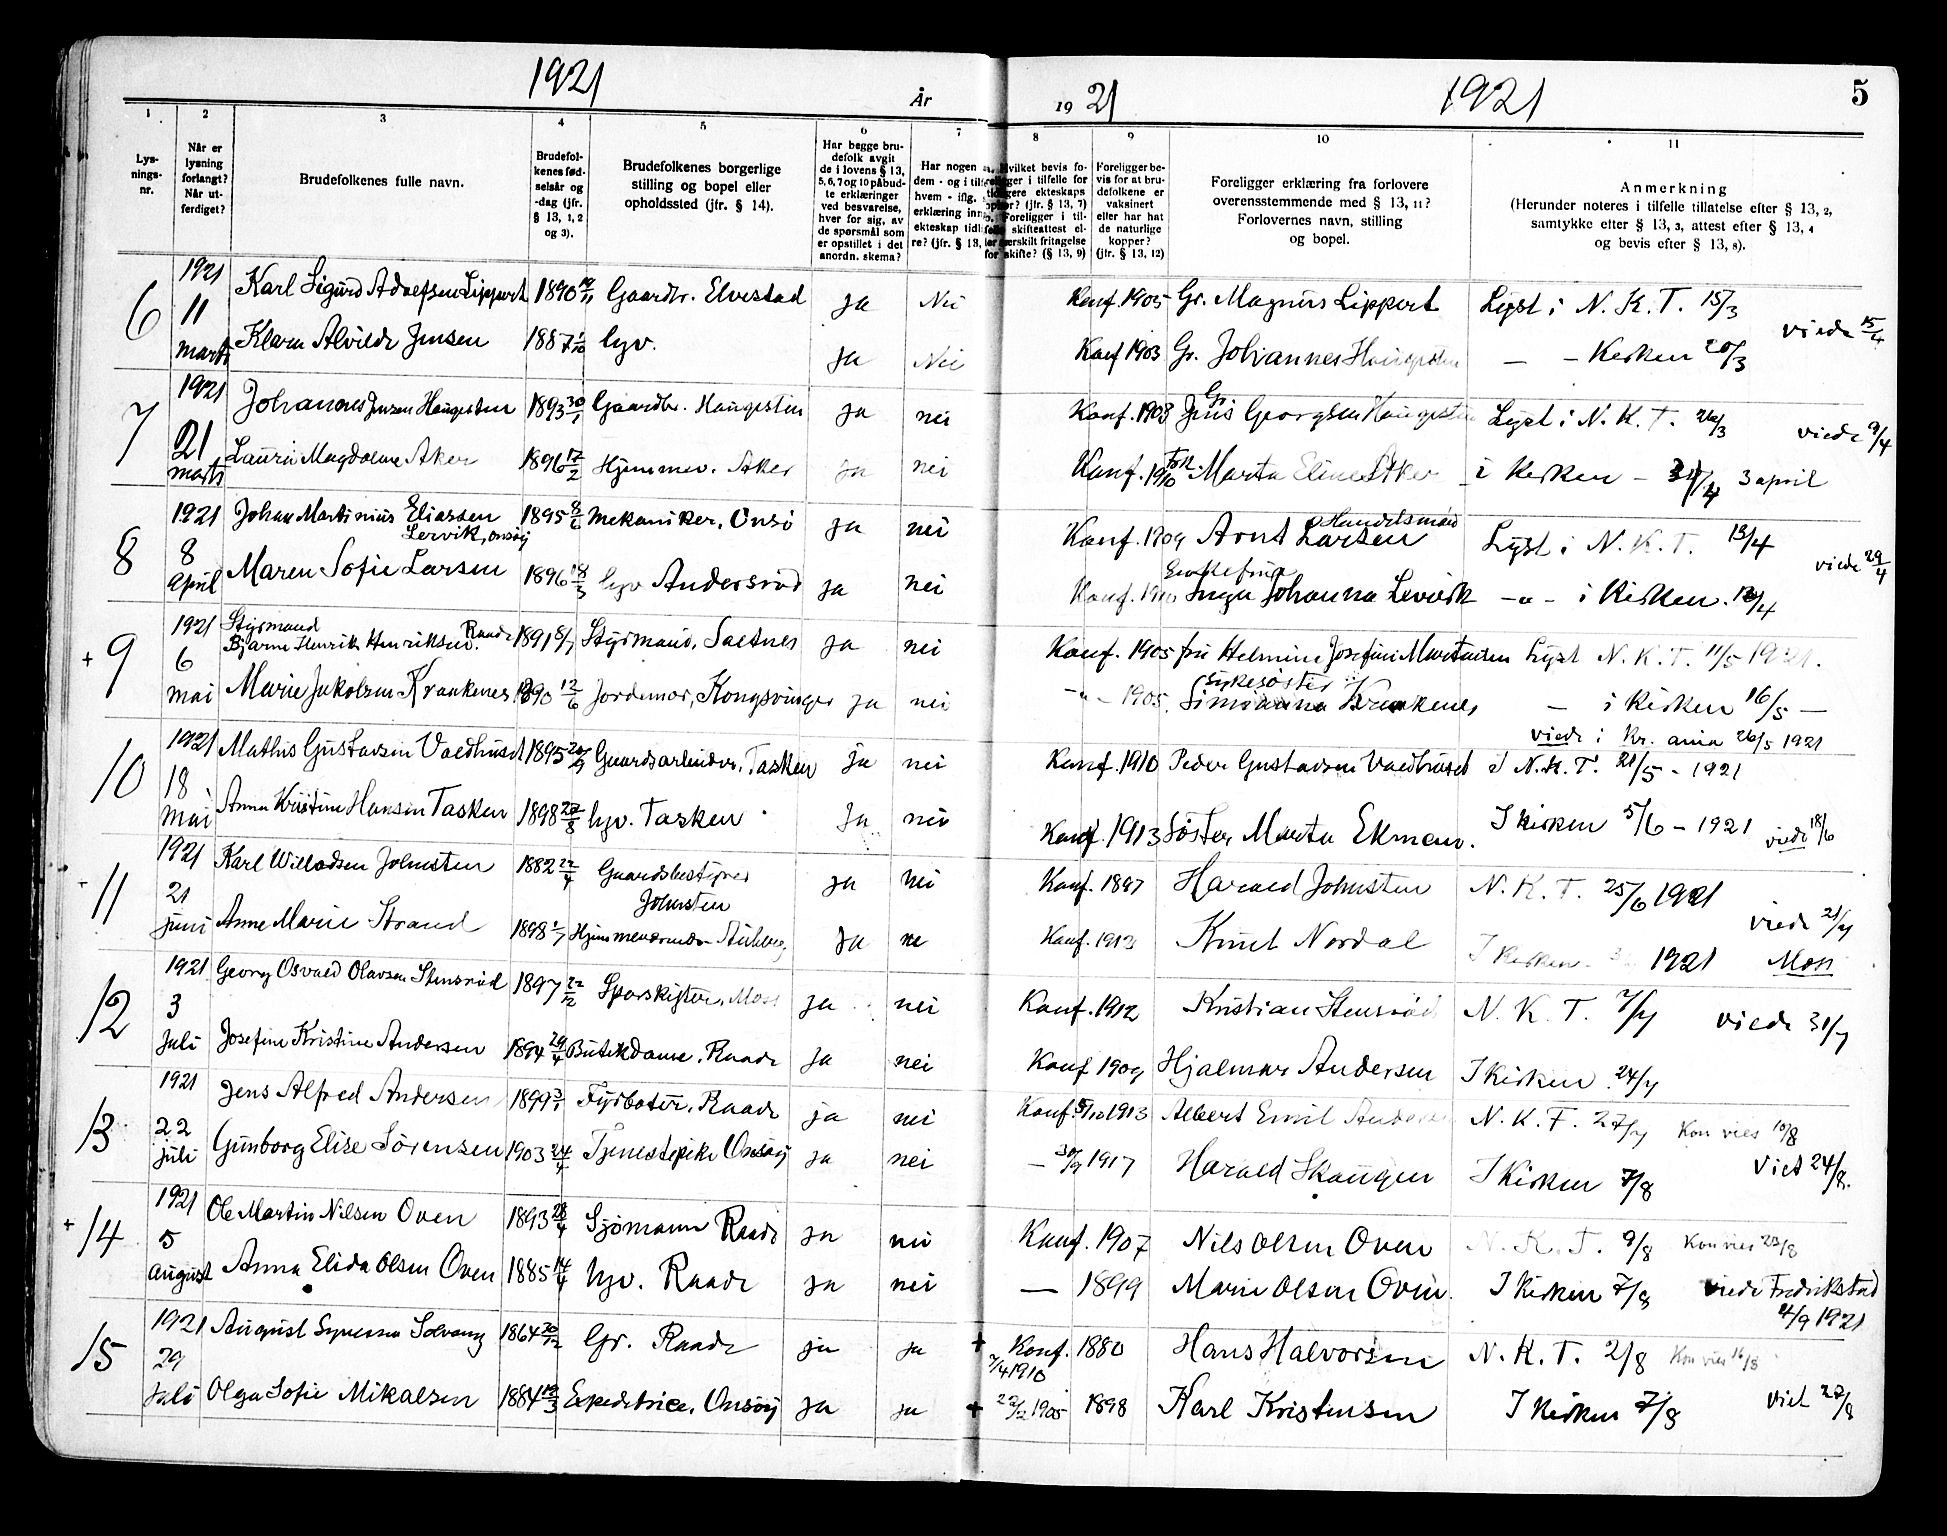 1921
År
19 21
1921
5
1 2 3 4 5 6 7 8 9 10 11
Lys-
nings-
nr.
Når er
lysning
forlangt?
Når ut-
ferdiget?
Brudefolkenes fulle navn.
Brudefol-
kenes fød-
selsår og
-dag (jfr.
§ 13, 1, 2
og 3).
Brudefolkenes borgerlige
stilling og bopel eller
opholdssted (jfr. § 14).
Har begge bru-
defolk avgit
de i lovens § 13,
5, 6, 7 og 10 påbud-
te erklæringer
ved besvarelse,
hver for sig, av
de spørsmål som
er opstillet i det
anordn. skema?
Har nogen
dem - og i
hvem - iflg.
erklæring
ekteskap
re? (jfr. § 13,
Hvilket bevis fo-
ligger i tilfelle for
ekteskaps
(jfr. § 13, 7)
Foreligger i til-
skifteattest el-
særskilt fritagelse
for skifte? (§ 13, 9)
Foreligger be-
vis for at bru-
defolkene er
vaksinert
eller har hat
de naturlige
kopper?
(jfr. § 13, 12)
Foreligger erklæring fra forlovere
overensstemmende med § 13, 11?
Forlovernes navn, stilling
og bopel.
Anmerkning
(Herunder noteres i tilfelle tillatelse efter § 13, 2,
samtykke efter § 13, 3, attest efter § 13, 4
og bevis efter § 13, 8).
6 1921 11 Karl Sigurd Adolfsen Lippert 1890 Gaardbr. Elvestad ja Nei Konf. 1905 Gr. Magnus Lippert Lyst i N. K. T. 15/3 viede 15/4
marts Klara Alvilde Jensen 1887 1/10 hjv. ja Nei Konf 1903 Gr. Johannes Haugesten — - Kirken 20/3
7 1921 Johannes Jensen Haugesten 1893 30/1 Gaardbr. Haugesten ja nei Konf. 1908 Gr. Jens Georgsen Haugesten Lyst i N. K. T. 26/3 viede 9/4
21 marts Laura Magdalene Aker 1896 17/2 Hjemmev. Aker ja nei Konf. 1910 Frk. Marta Eline Aker i Kirken - 3/4 3 april
8 1921 Johan Martinius Eliassen 1895 8/6 Mekaniker, Onsø ja nei Konf. 1909 Arnt Larsen Handelsmand Lyst i N. K. T. 13/4 viede 29/4
Lervik, Onsøy
8 april Maren Sofie Larsen 1896 18/3 hjv Andersrød ja nei Konf. 1910 Enkefrue Inga Johanna Levirk -"- i Kirken.
+ 9 1921 Styrmand
Bjarne Henrik Henriksen. Raade 1891 8/7 Styrmand, Saltnes ja nei Konf. 1905 fru Helmine Josefine Martinsen Lyst N. K. T. 11/5 1921.
6 mai Marie Jakobsen Kraakenes 1890 12/6 Jordemor, Kongsvinger ja nei -"- 1905. Sykesøster Simianna Kraakenes — i Kirken 16/5 —
viede i Kr. ania 26/5 1921
10 1921 Mathis Gustavsen Valdhuset 1895 Gaardsarbeider, Tasken ja nei Konf. 1910 Peder Gustavsen Valdhuset I N. K. T. 21/5 - 1921
18 Mai Anna Kristine Hansen Tasken 1898 27/8 hjv. Tasken Ja nei Konf. 1913 Søster Marta Ekmann. I Kirken 5/6 - 1921 viede 18/6
11 1921 Karl Willadsen Johnsten 1882 22/4 Gaardsbestyrer Johnsten ja nei Konf. 1897 Harald Johnsten N. K. T. 25/6 1921
21 juni Anne Marie Strand 1898 1/7 ja ne Konf. 1913 Knut Nordal I Kirken 1921 viede 21/7 Moss
12 1921 Georg Osvald Olavsen Stensrød 1897 22/12 Moss ja nei Konf. 1912 Kristian Stensrød N. K. T. 7/7 viede 31/7
3 Juli Josefine Kristine Andersen 1894 29/4 Butikdame, Raade ja nei Konf 1909 Hjalmar Andersen I Kirken 24/7
13 1921 Jens Alfred Andersen 1899 3/1 Fyrbøter, Raade ja nei Konf. 5/10 1913 Albert Emil Andersen N. K. T. 27/7 Kon vies 10/8
22 juli Gunborg Elise Sørensen 1903 24/4 Tjenestepike Onsøy ja nei — 30/9 1917 Harald Skaugen I Kirken 7/8 Viet 24/8.
+ 14 1921 Ole Martin Nilsen Oven 1893 28/4 Sjømann Raade ja nei Konf. 1907 Nils Olsen Oven N. K. T. 9/8 Kon vies 23/8
5 august Anna Elida Olsen Oven 1885 14/4 hjv. Raade ja nei — 1899 Marie Olsen Oven. I Kirken 7/8 viede Fredrikstad
4/9 1921
15 1921 August Syversen Solvang 1864 30/12 Gr. Raade ja ja + 7/4 1910 Konf. 1880 Hans Halvorsen N. K. T. 2/8 Kon vies 16/8
29 Juli Olga Sofie Mikalsen 1884 19/3 Expeditrice, Onsøy ja ja + 22/2 1905 1898 Karl Kristensen I Kirken 7/8 Viet 27/8